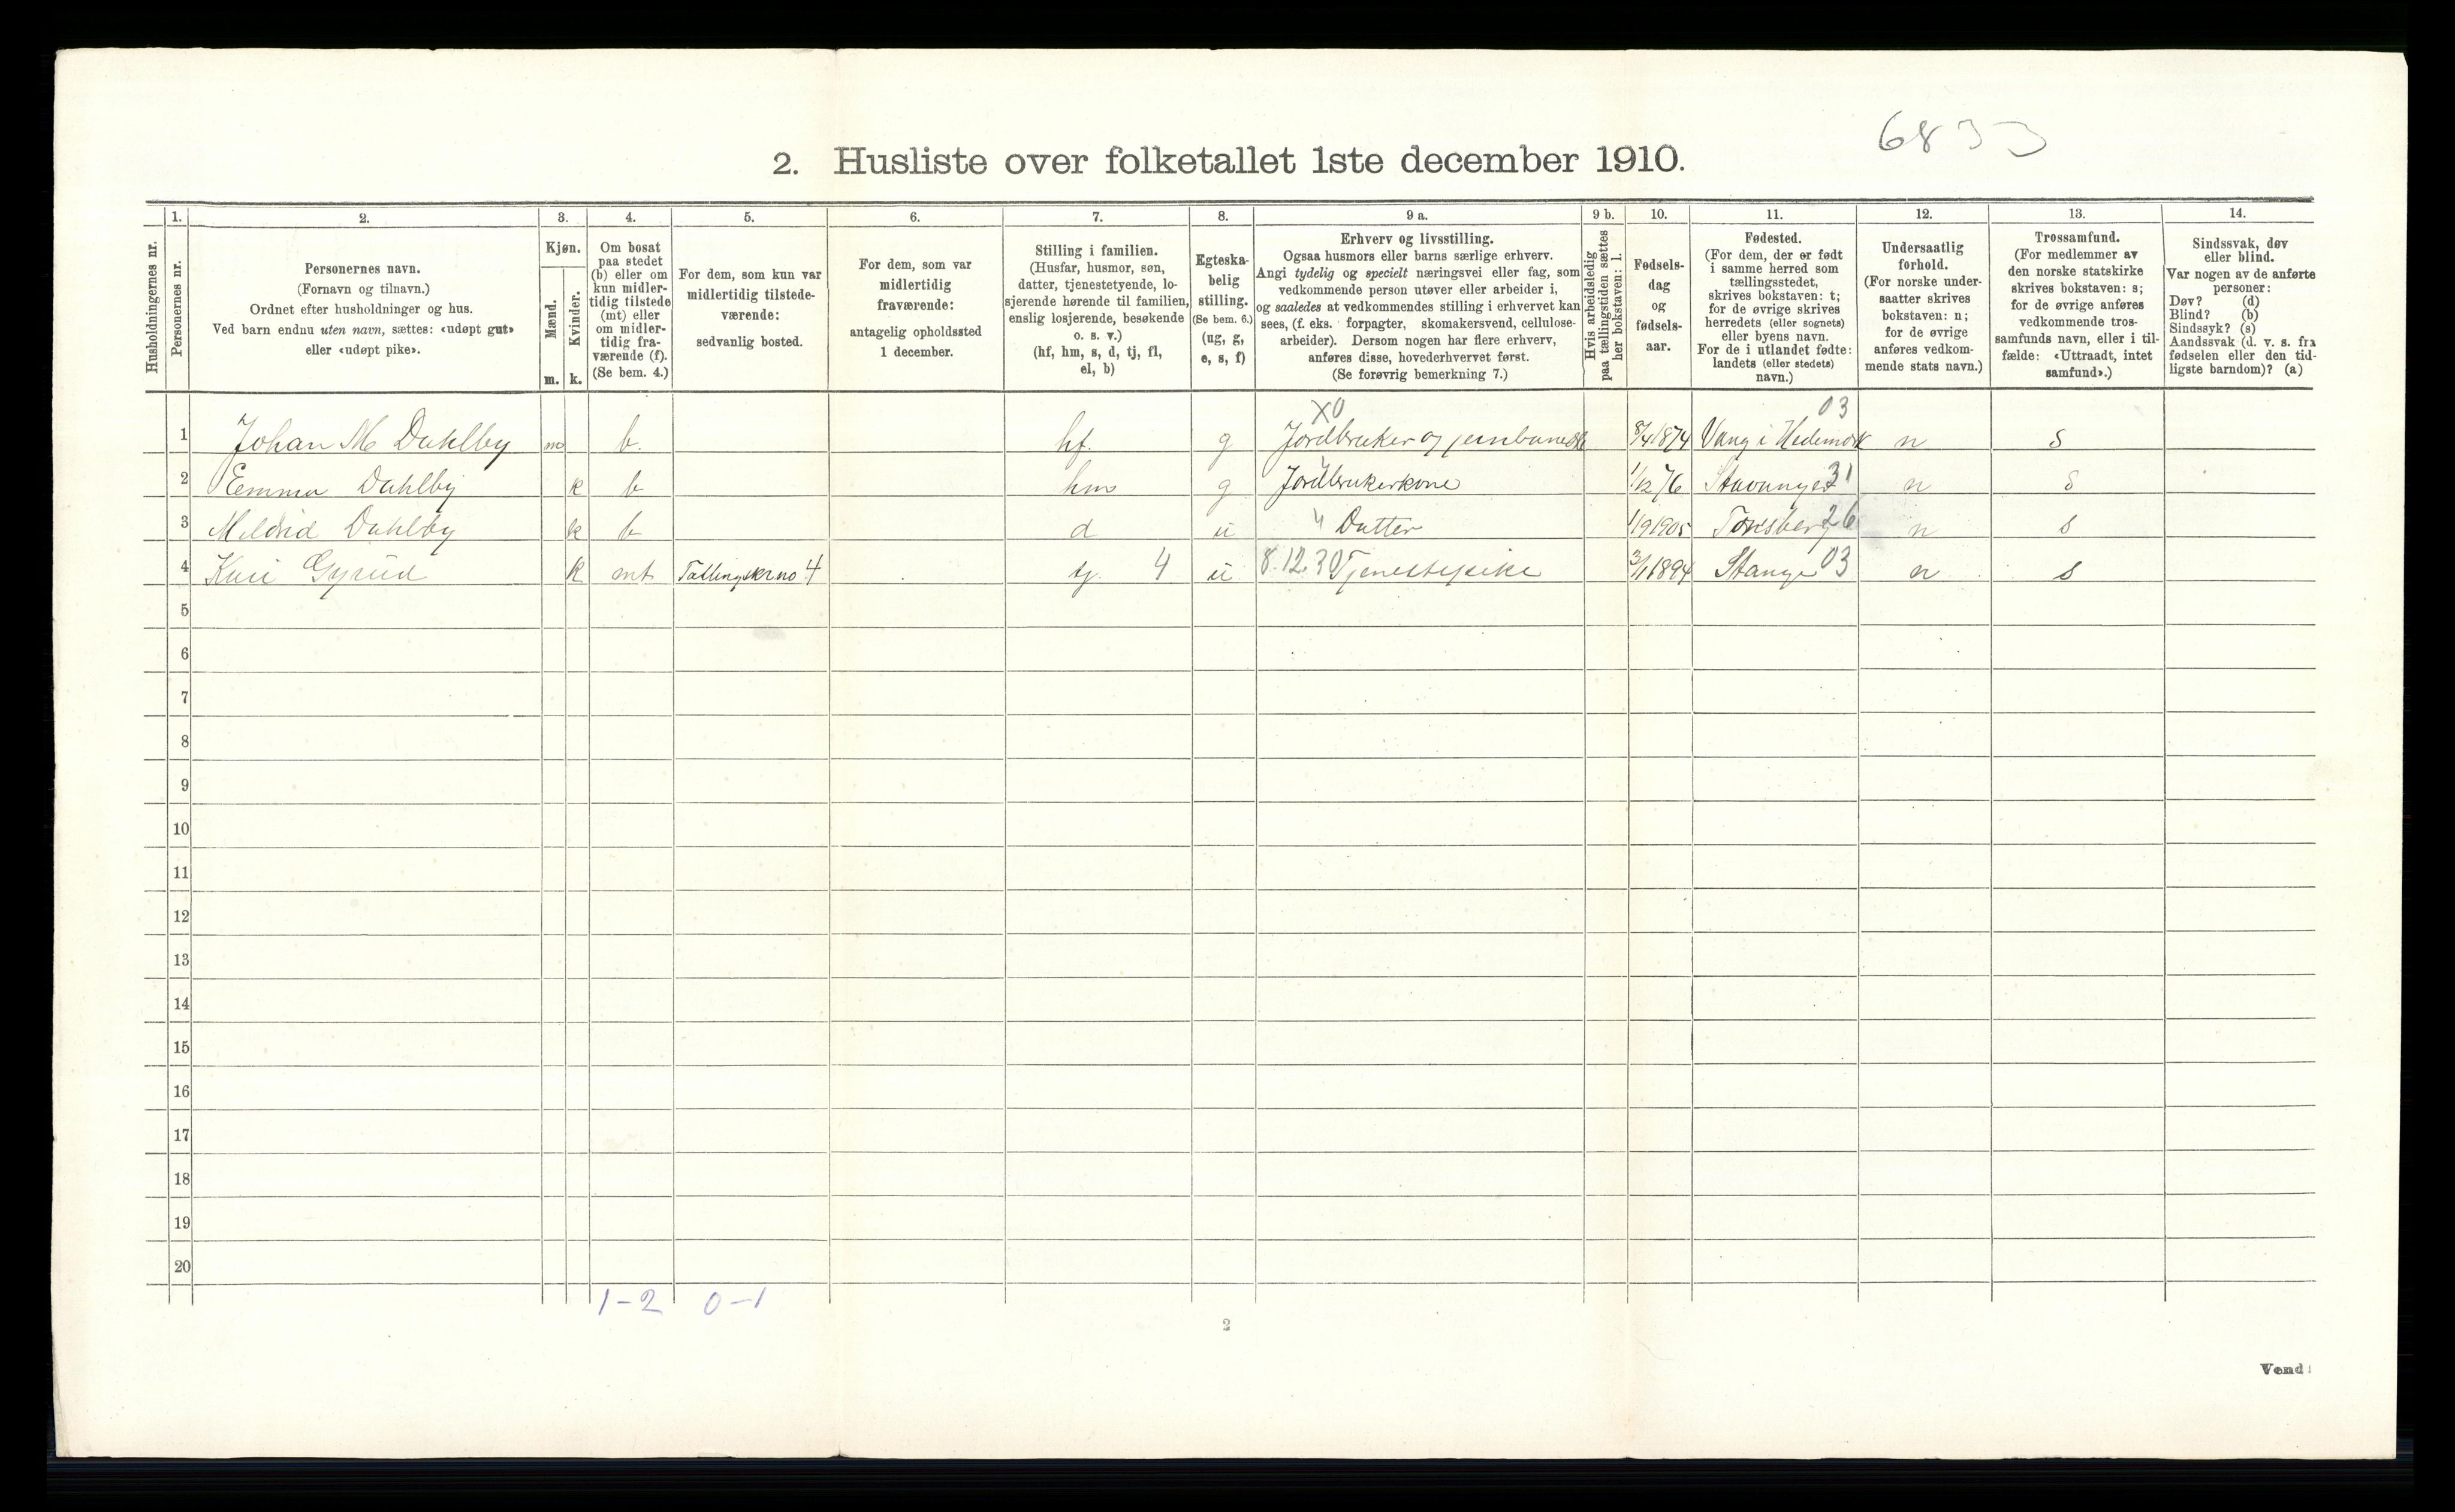 6833
2. Husliste over folketallet 1ste december 1910.
Husholdningernes nr.
1.
Personernes nr.
2.
Personernes navn.
(Fornavn og tilnavn.)
Ordnet efter husholdninger og hus.
Ved barn endnu uten navn, sættes: «udøpt gut»
eller «udøpt pike».
3.
Kjøn.
Mænd.
m.
Kvinder.
k.
4.
Om bosat
paa stedet
(b) eller om
kun midler-
tidig tilstede
(mt) eller
om midler-
tidig fra-
værende (f).
(Se bem. 4.)
5.
For dem, som kun var
midlertidig tilstede-
værende:
sedvanlig bosted.
6.
For dem, som var
midlertidig
fraværende:
antagelig opholdssted
1 december.
7.
Stilling i familien.
(Husfar, husmor, søn,
datter, tjenestetyende, lo-
sjerende hørende til familien,
enslig losjerende, besøkende
o. s. v.)
(hf, hm, s, d, tj, fl,
el, b)
8.
Egteska-
belig
stilling.
(Se bem. 6.)
(ug, g,
e, s, f)
9 a.
Erhverv og livsstilling.
Ogsaa husmors eller barns særlige erhverv.
Angi tydelig og specielt næringsvei eller fag, som
vedkommende person utøver eller arbeider i,
og saaledes at vedkommendes stilling i erhvervet kan
sees, (f. eks. forpagter, skomakersvend, cellulose-
arbeider). Dersom nogen har flere erhverv,
anføres disse, hovederhvervet først.
(Se forøvrig bemerkning 7.)
9 b.
Hvis arbeidsledig
paa tællingstiden sættes
her bokstaven: l.
10.
Fødsels-
dag
og
fødsels-
aar.
11.
Fødested.
(For dem, der er født
i samme herred som
tællingsstedet,
skrives bokstaven: t;
for de øvrige skrives
herredets (eller sognets)
eller byens navn.
For de i utlandet fødte:
landets (eller stedets)
navn.)
12.
Undersaatlig
forhold.
(For norske under-
saatter skrives
bokstaven: n;
for de øvrige
anføres vedkom-
mende stats navn.)
13.
Trossamfund.
(For medlemmer av
den norske statskirke
skrives bokstaven: s;
for de øvrige anføres
vedkommende tros-
samfunds navn, eller i til-
fælde: «Uttraadt, intet
samfund».)
14.
Sindssvak, døv
eller blind.
Var nogen av de anførte
personer:
Døv? (d)
Blind? (b)
Sindssyk? (s)
Aandssvak (d. v. s. fra
fødselen eller den tid-
ligste barndom)? (a)
X0 03
1 Johan M Dahlby m b. hf. g Jordbruker og 8/4 1874 Vang i Hedemark n s
2 Emma Dahlby k b hm g Jordbrukerkone 1/12 76 Stavanger 31 n s
3 Mildrid Dahlby k b d u Datter 1/9 1905 Tønsberg 26 n s
4 Kari Gyrud k mt 4 tj. 4 u 8.12.30 Tjenestepike 3/1 1894 Stange 03 n s
5
6
7
8
9
10
11
12
13
14
15
16
17
18
19
20
1-2 0-1
2
Vend